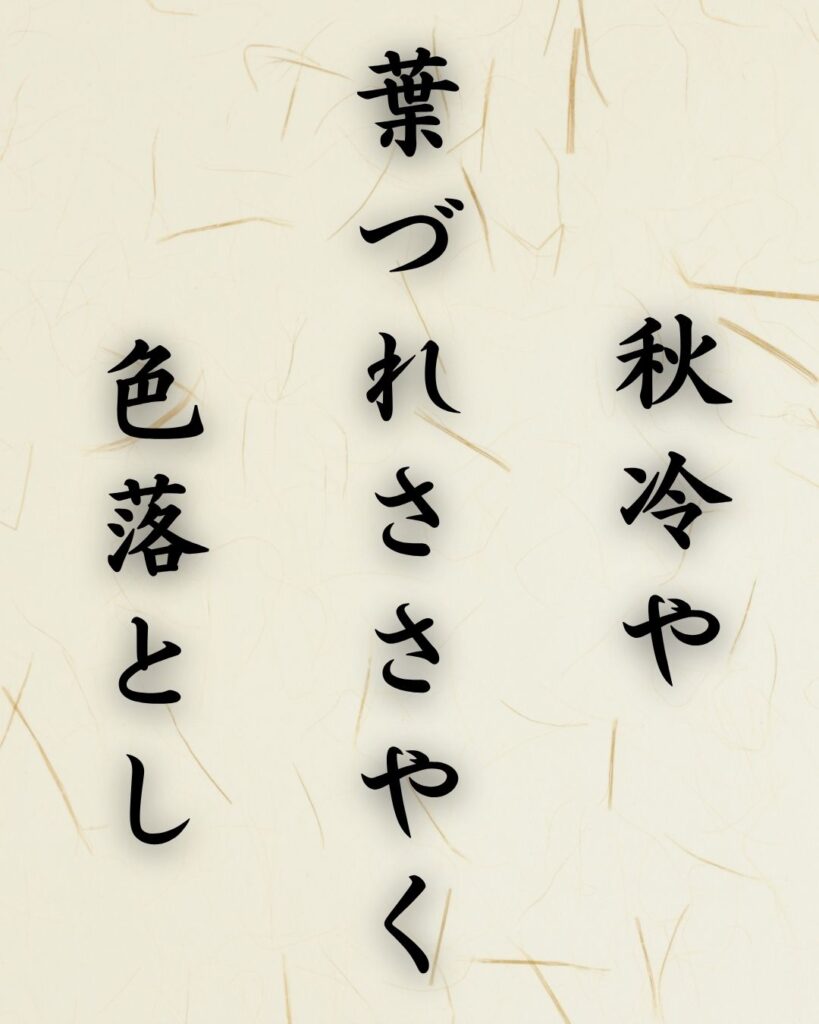 秋冷や
葉づれささやく
色落とし